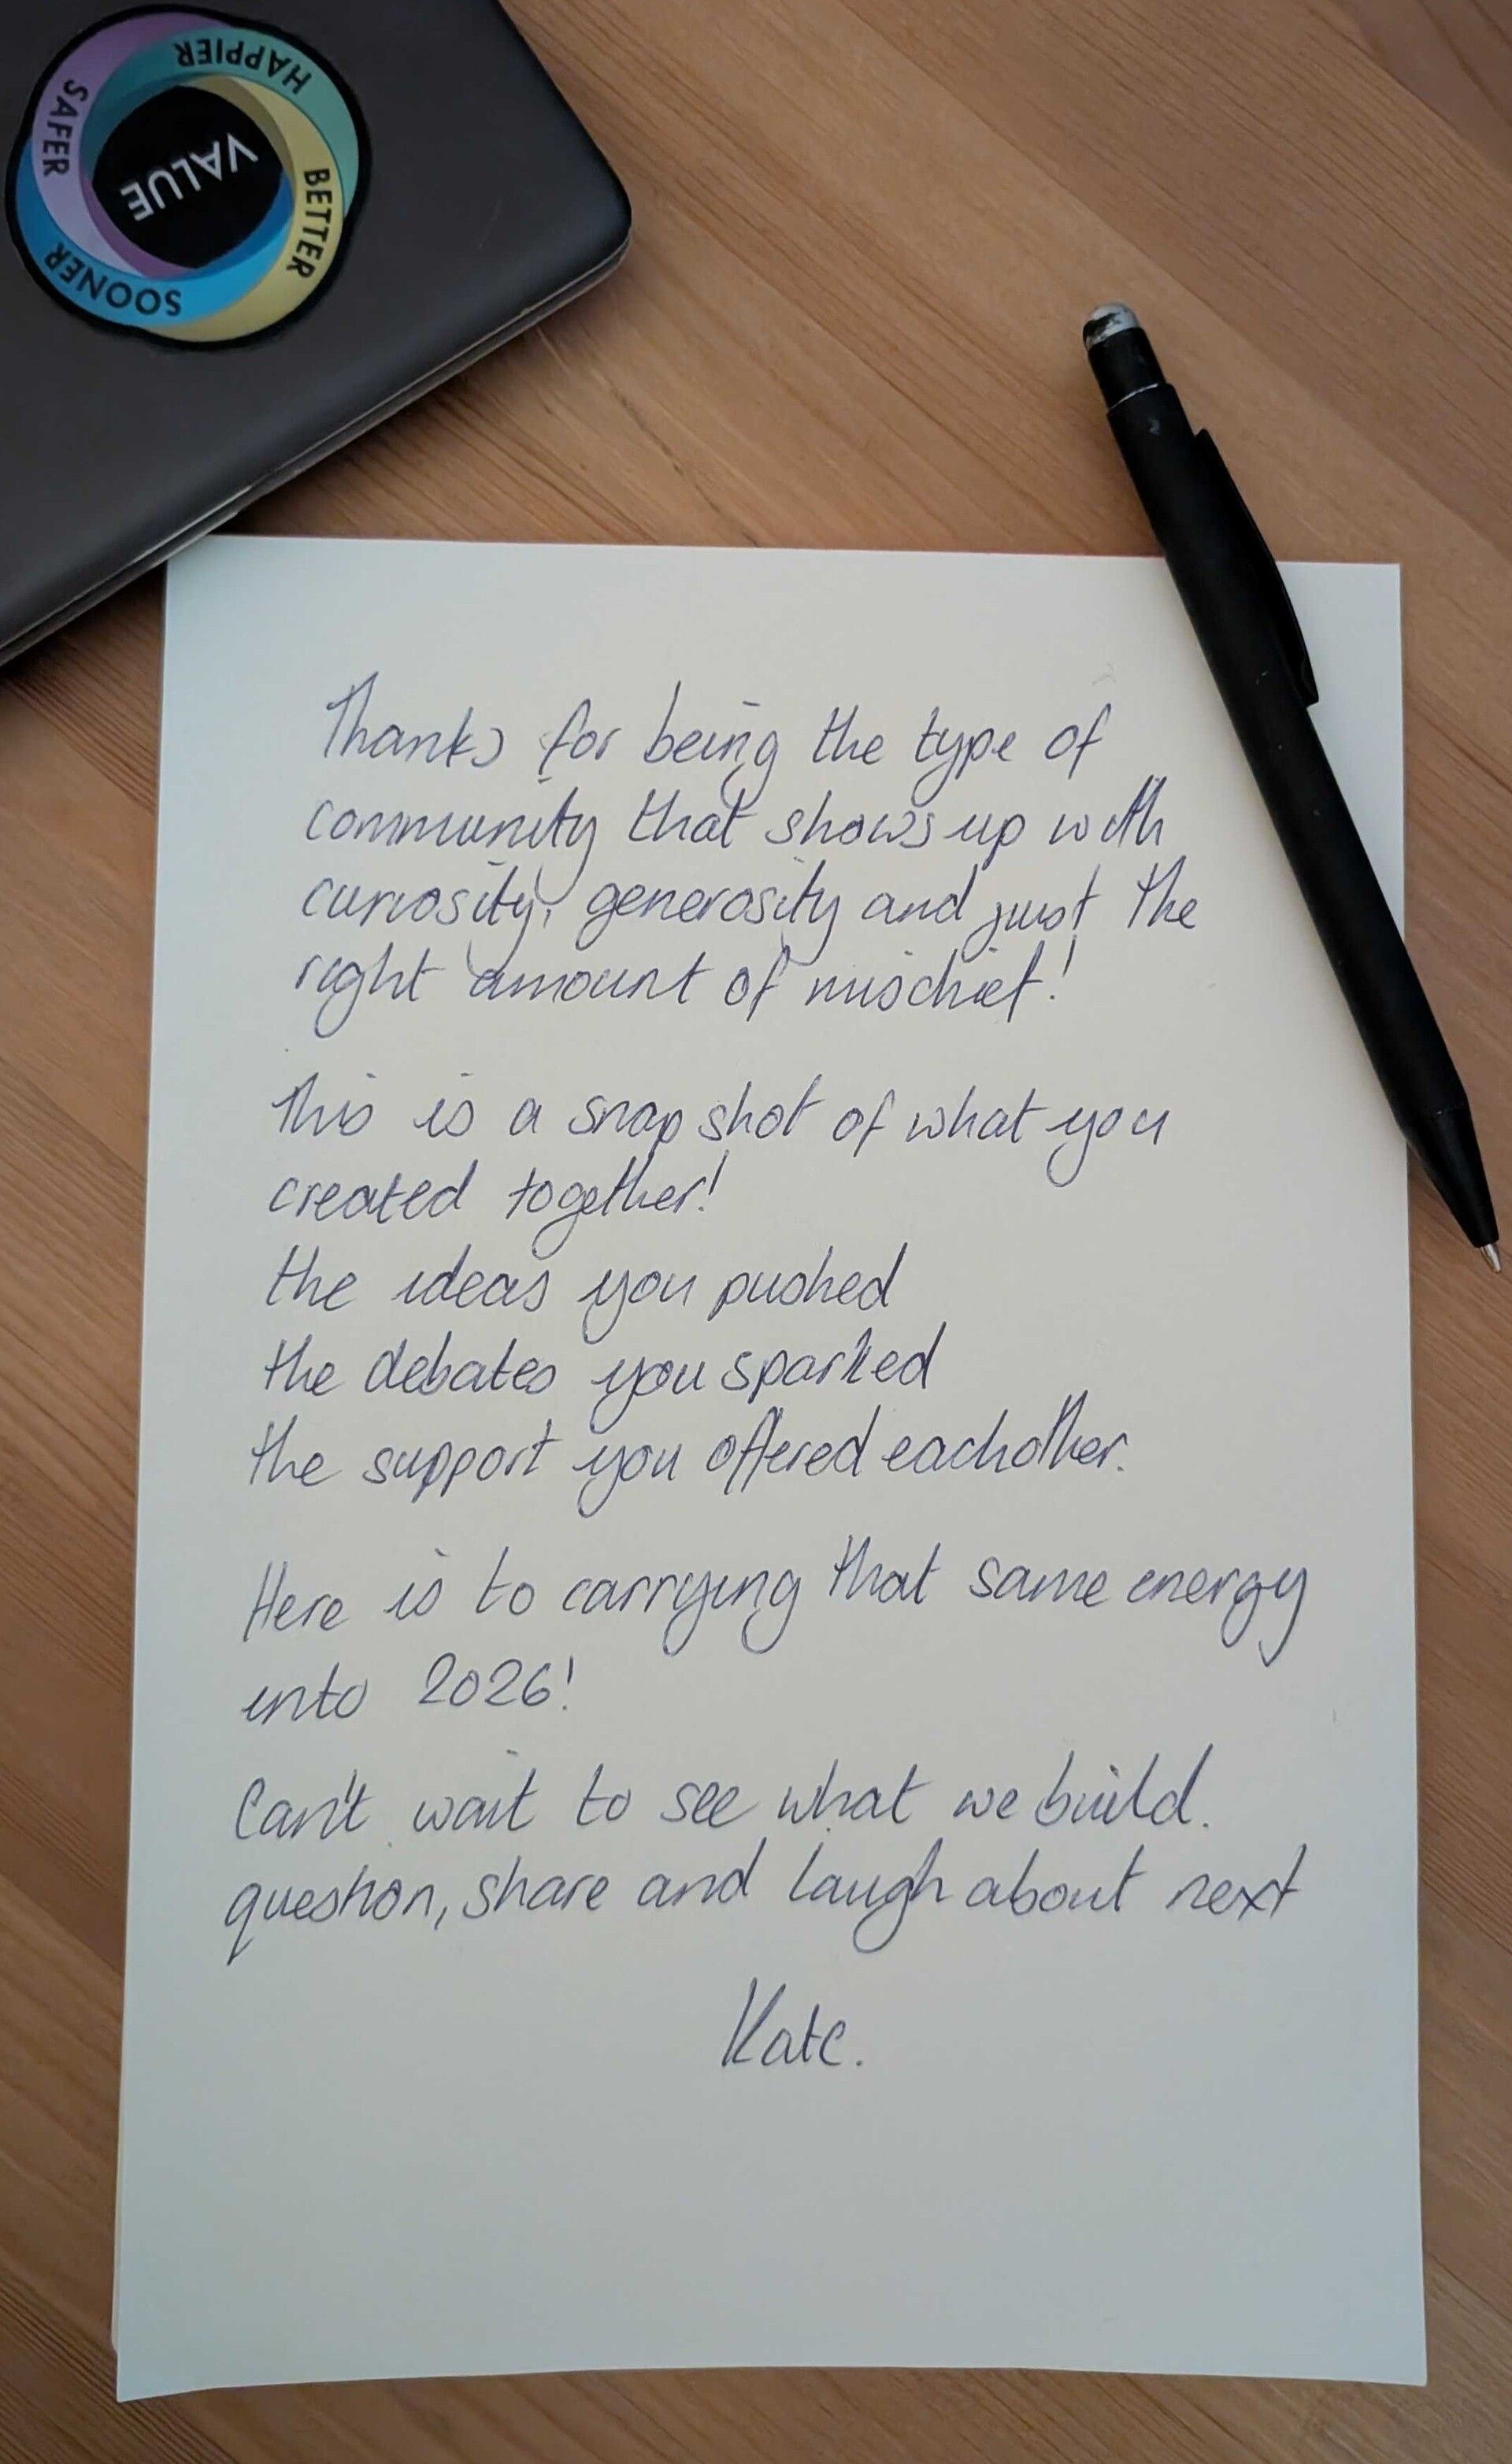 BETTER
SOONER
SAFER
HAPPIER
VALUE
Thanks for being the type of
community that shows up with
curiosity, generosity and just the
right amount of mischief!
This is a snap shot of what you
created together!
the ideas you pushed
the debates you sparked
the support you offered eachother.
Here is to carrying that same energy
into 2026!
Can't wait to see what we build.
question, share and laugh about next
Kate.